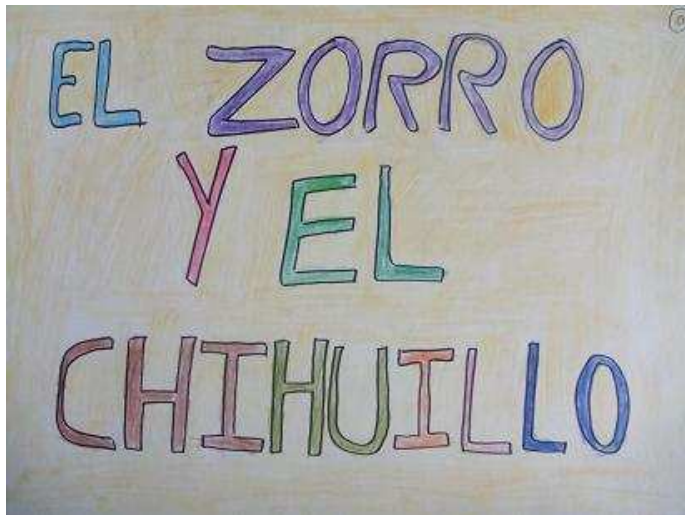 EL ZORRO
Y EL
CHIHUILLO